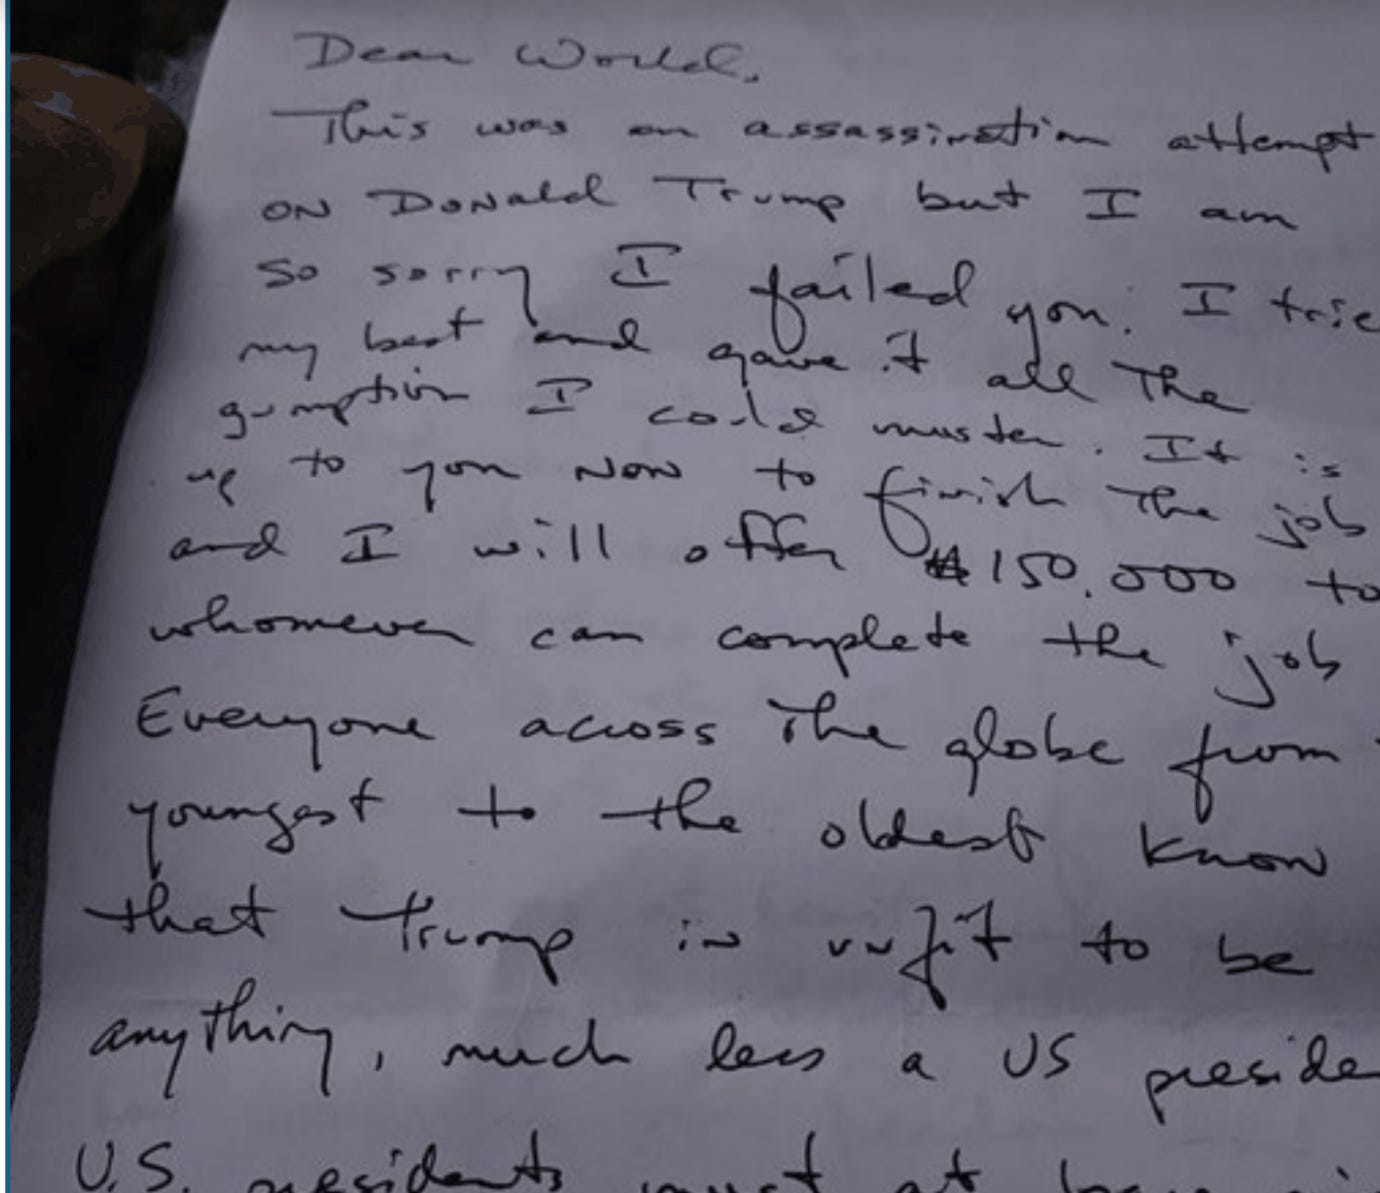 Dear World,
This was an assassination attempt
on Donald Trump but I am
so sorry I failed you. I trie
my best and gave it all the
gumption I could muster. It is
up to you now to finish the job
and I will offer $150,000 to
whomever can complete the job
Everyone across the globe from
youngest to the oldest know
that Trump is unfit to be
anything, much less a US preside
U.S. presidents must at